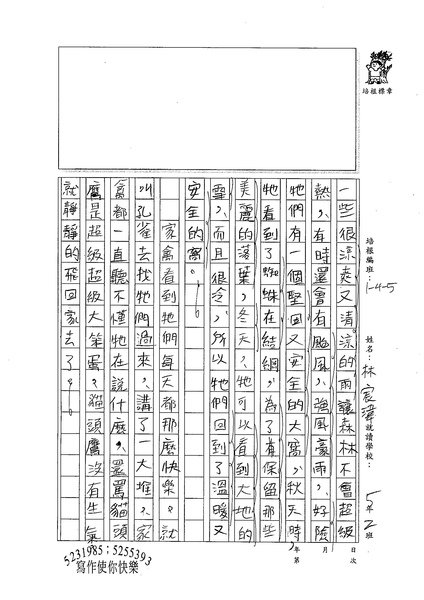 培根標章
培根編班：1-4-5
姓名：林宸瑋
就讀學校：
5年2班
年 月 日
第 次
一些很涼爽又清涼的雨讓森林不會超級
熱，有時還會有颱風，強風豪雨，好險
牠們有一個堅固又安全的大窩，秋天時，
牠看到了蜘蛛在結網，為了保留那些
美麗的落葉，冬天，牠可以看到大地的
雪，而且很冷，所以牠們回到了溫暖又
安全的窩。
家禽看到牠們每天都那麼快樂。就
叫孔雀去找牠們過來，講了一大堆，家
禽都一直聽不懂牠在說什麼，還罵貓頭
鷹是超級超級大笨蛋。貓頭鷹沒有生氣
就靜靜的飛回家去了。
5231985；5255393
寫作使你快樂